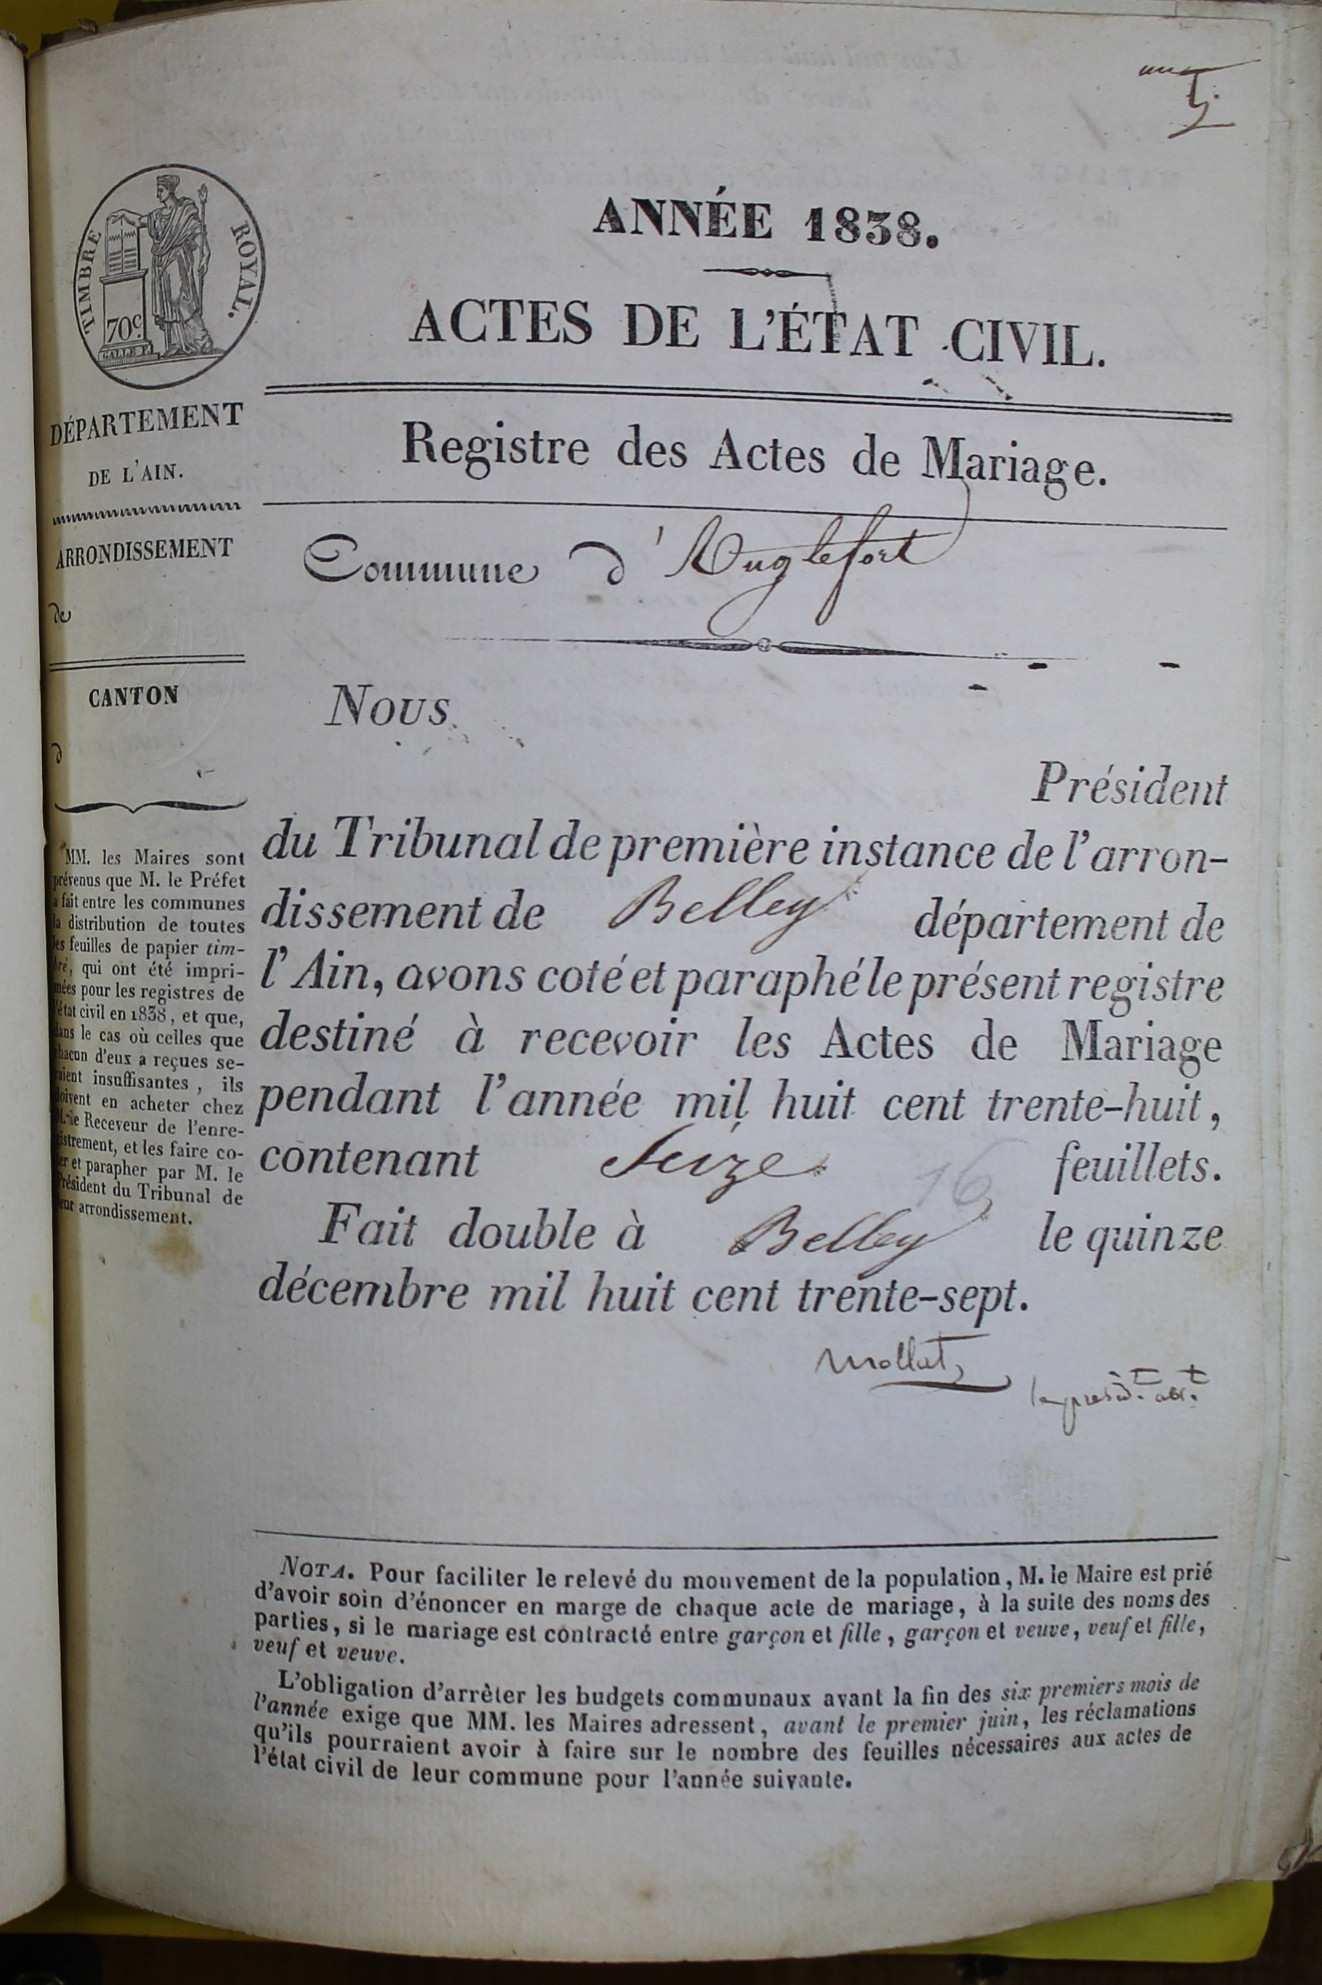 TIMBRE ROYAL.
70c
GALLE F.
ANNÉE 1838.
ACTES DE L'ÉTAT CIVIL.
DÉPARTEMENT
DE L'AIN.
ARRONDISSEMENT
de
CANTON
d
MM. les Maires sont
prévenus que M. le Préfet
a fait entre les communes
la distribution de toutes
les feuilles de papier tim-
bré, qui ont été impri-
mées pour les registres de
l'état civil en 1838, et que,
dans le cas où celles que
chacun d'eux a reçues se-
raient insuffisantes, ils
doivent en acheter chez
M. le Receveur de l'enre-
gistrement, et les faire co-
ter et parapher par M. le
Président du Tribunal de
leur arrondissement.
Registre des Actes de Mariage.
Commune d'Anglefort
Nous
Président
du Tribunal de première instance de l'arron-
dissement de Belley département de
l'Ain, avons coté et paraphé le présent registre
destiné à recevoir les Actes de Mariage
pendant l'année mil huit cent trente-huit,
contenant Seize 16 feuillets.
Fait double à Belley le quinze
décembre mil huit cent trente-sept.
Mollet
NOTA. Pour faciliter le relevé du mouvement de la population, M. le Maire est prié
d'avoir soin d'énoncer en marge de chaque acte de mariage, à la suite des noms des
parties, si le mariage est contracté entre garçon et fille, garçon et veuve, veuf et fille,
veuf et veuve.
L'obligation d'arrêter les budgets communaux avant la fin des six premiers mois de
l'année exige que MM. les Maires adressent, avant le premier juin, les réclamations
qu'ils pourraient avoir à faire sur le nombre des feuilles nécessaires aux actes de
l'état civil de leur commune pour l'année suivante.